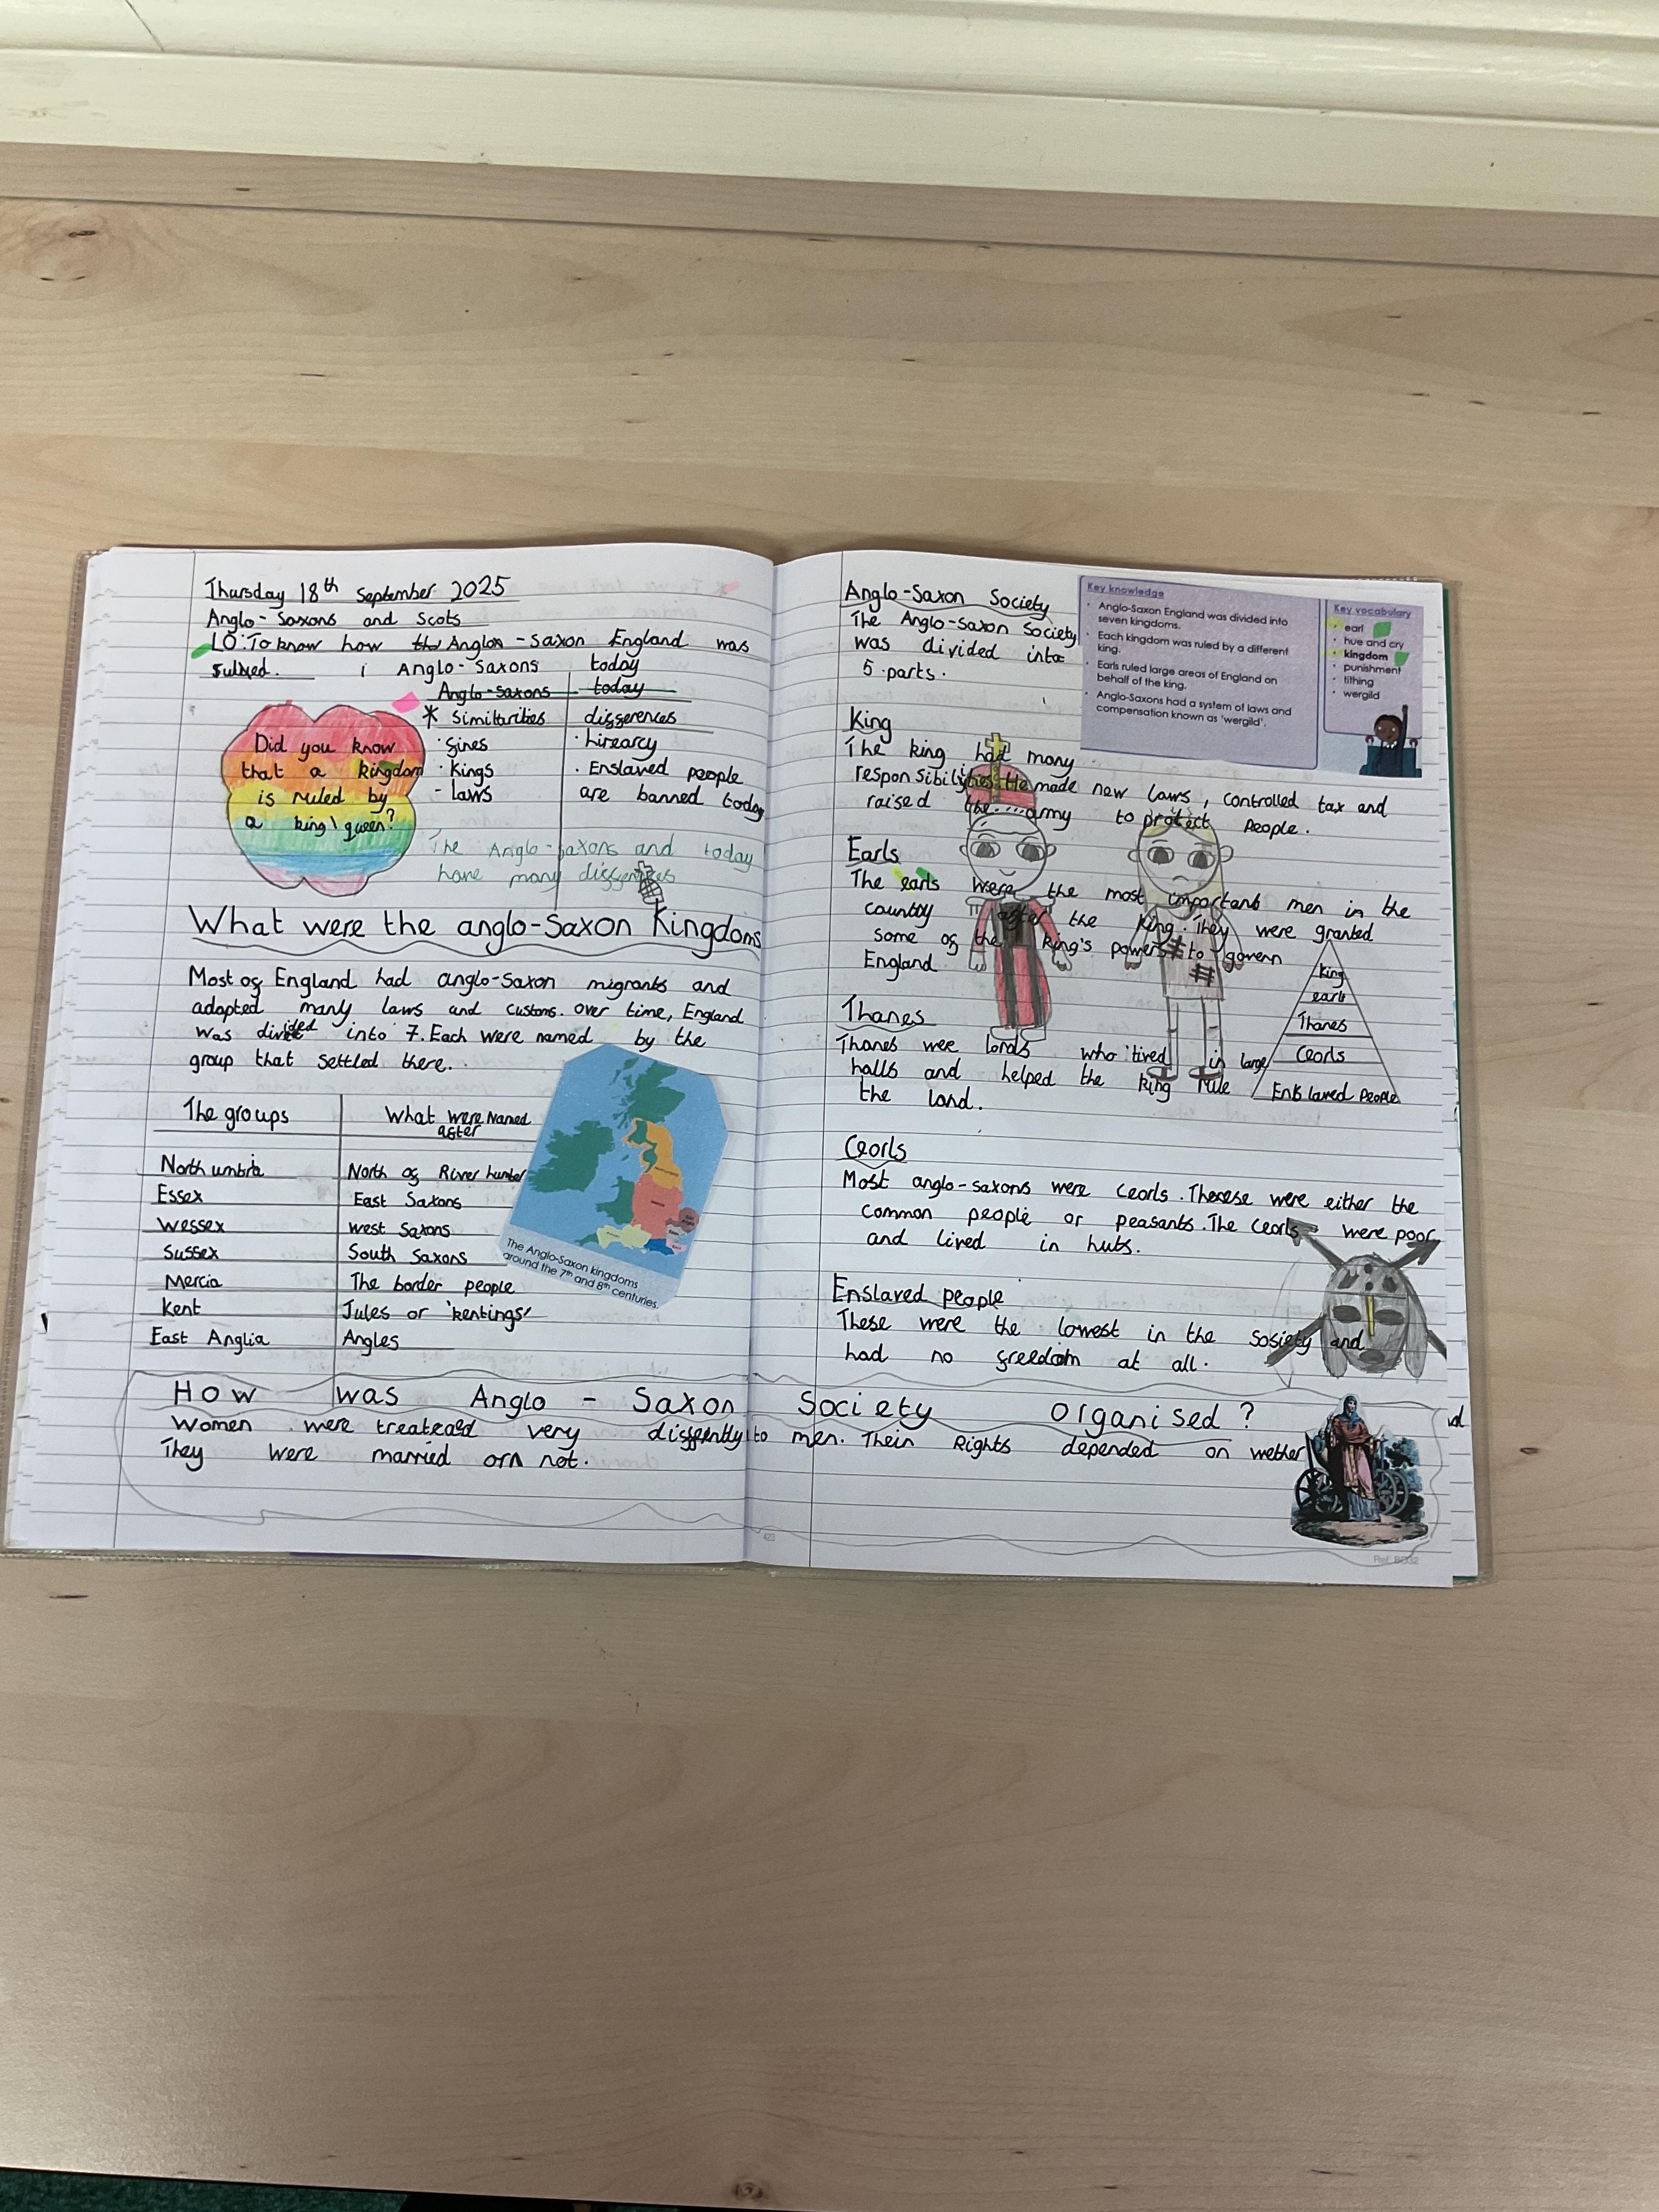 Thursday 18th September 2025
Anglo-Saxons and Scots
LO: To know how the Anglon-saxon England was
rulxed.
Anglo-Saxons today
Anglo-saxons today
* Similtarities differences
· fines · hirearcy
· Kings · Enslaved people
- laws are banned today
Did you know
that a kingdom
is ruled by
a king\queen?
The Anglo-saxons and today
have many differences
What were the anglo-Saxon Kingdoms
Most of England had anglo-Saxon migrants and
adopted many laws and customs. over time, England
was divided into 7. Each were named by the
group that settled there.
The groups What were Named
after
Northumbria North of River humber
Essex East Saxons
Wessex West Saxons
Sussex South Saxons
Mercia The border people
Kent Jutes or 'kentings'
East Anglia Angles
The Anglo-Saxon kingdoms
around the 7th and 8th centuries.
Anglo-Saxon Society
The Anglo-saxon Society
was divided into
5 parts.
Key knowledge
• Anglo-Saxon England was divided into
seven kingdoms.
• Each kingdom was ruled by a different
king.
• Earls ruled large areas of England on
behalf of the king.
• Anglo-Saxons had a system of laws and
compensation known as 'wergild'.
Key vocabulary
• earl
• hue and cry
• kingdom
• punishment
• tithing
• wergild
King
The king had many
responsibilities. He made new laws, controlled tax and
raised the army to protect people.
Earls
The earls were the most important men in the
country after the king. They were granted
some of the king's powers to govern
England
Thanes
Thanes wee lords who lived in large
halls and helped the king rule
the land.
king
earls
Thanes
Ceorls
Enslaved People
Ceorls
Most anglo-saxons were Ceorls. Therese were either the
common people or peasants. The Ceorls were poor
and lived in huts.
Enslaved people
These were the lowest in the sosiety and
had no freedom at all.
How was Anglo - Saxon Society organised?
Women were treated very differently to men. Their Rights depended on wether
They were married orn not.
423
Ref: BG32